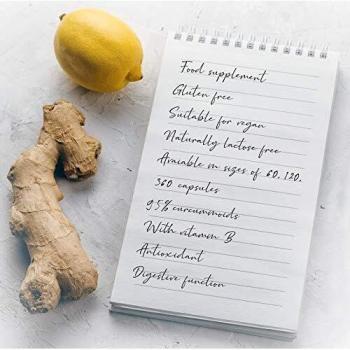 Food supplement
Gluten free
Suitable for vegan
Naturally lactose free
Avaiable in sizes of 60, 120,
360 capsules
95% curcummoids
With vitamin B
Antioxidant
Digestive function